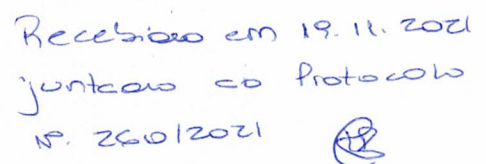 Recebido em 19.11.2021
juntado ao Protocolo
Nº. 260/2021